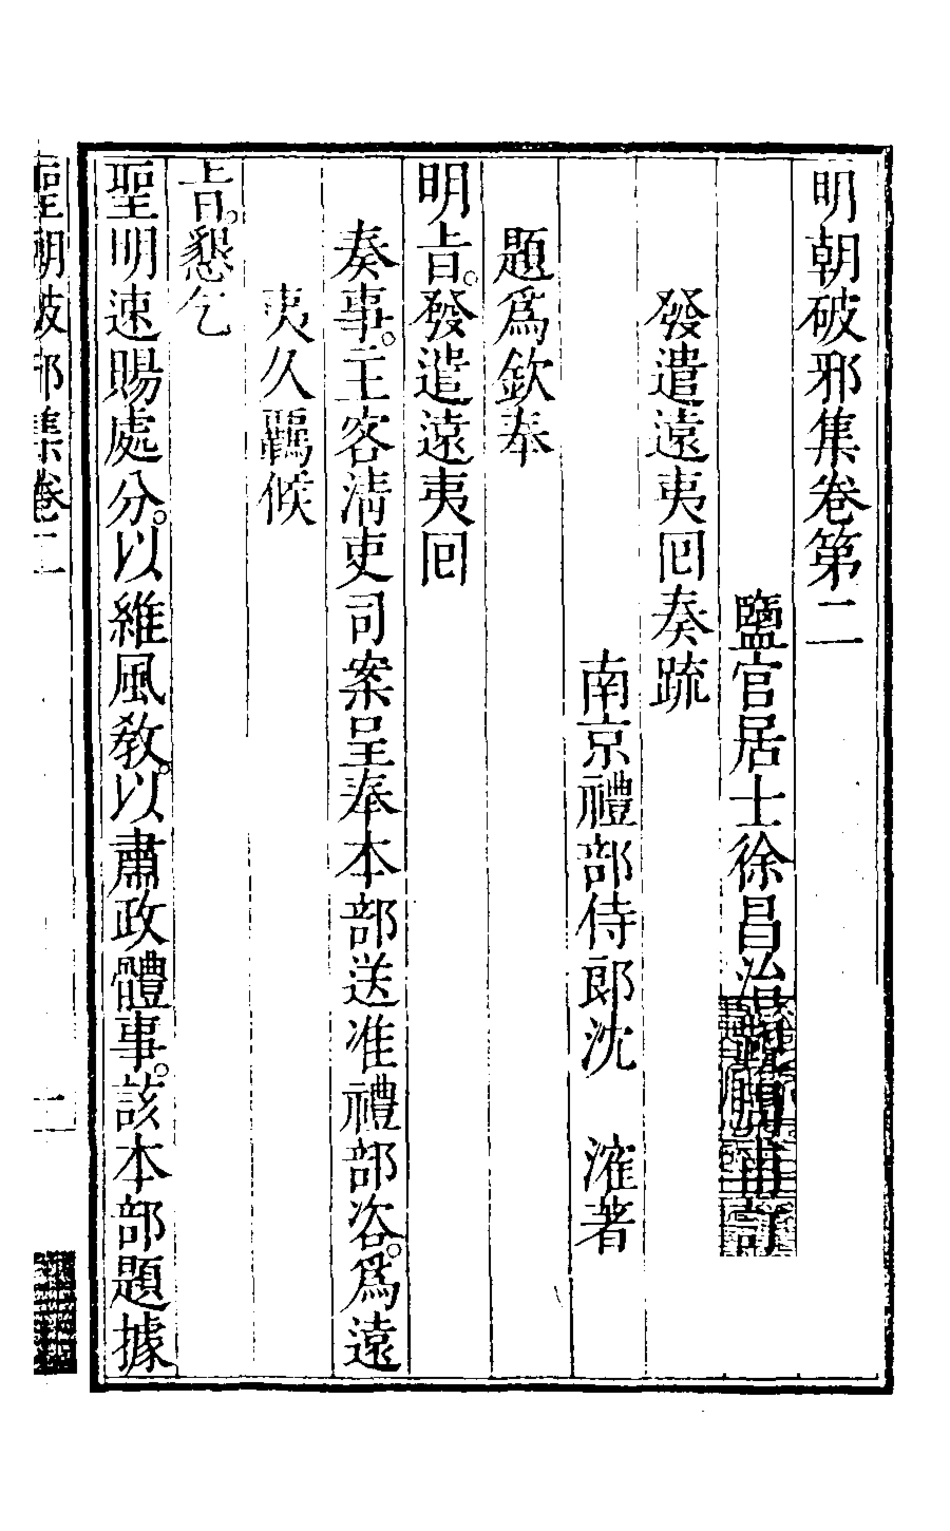 明朝破邪集卷第二
鹽官居士徐昌治
訂
發遣遠夷囘奏疏
南京禮部侍郎沈 㴶著
題爲欽奉
明旨。發遣遠夷囘
奏事。主客淸吏司案呈奉本部送准禮部咨。爲遠
夷久羈候
旨。懇乞
聖明速賜處分。以維風敎。以肅政體事。該本部題據
聖朝破邪集卷二
一